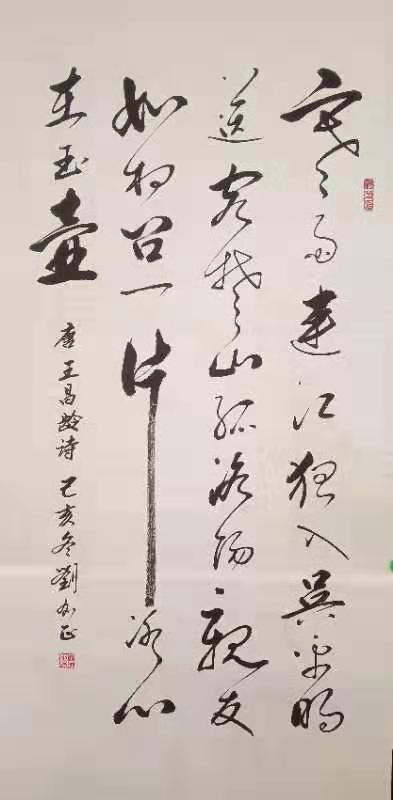 寒雨連江夜入吴平明
送客楚山孤洛陽親友
如相问一片冰心
在玉壺
唐王昌龄诗 己亥冬劉正